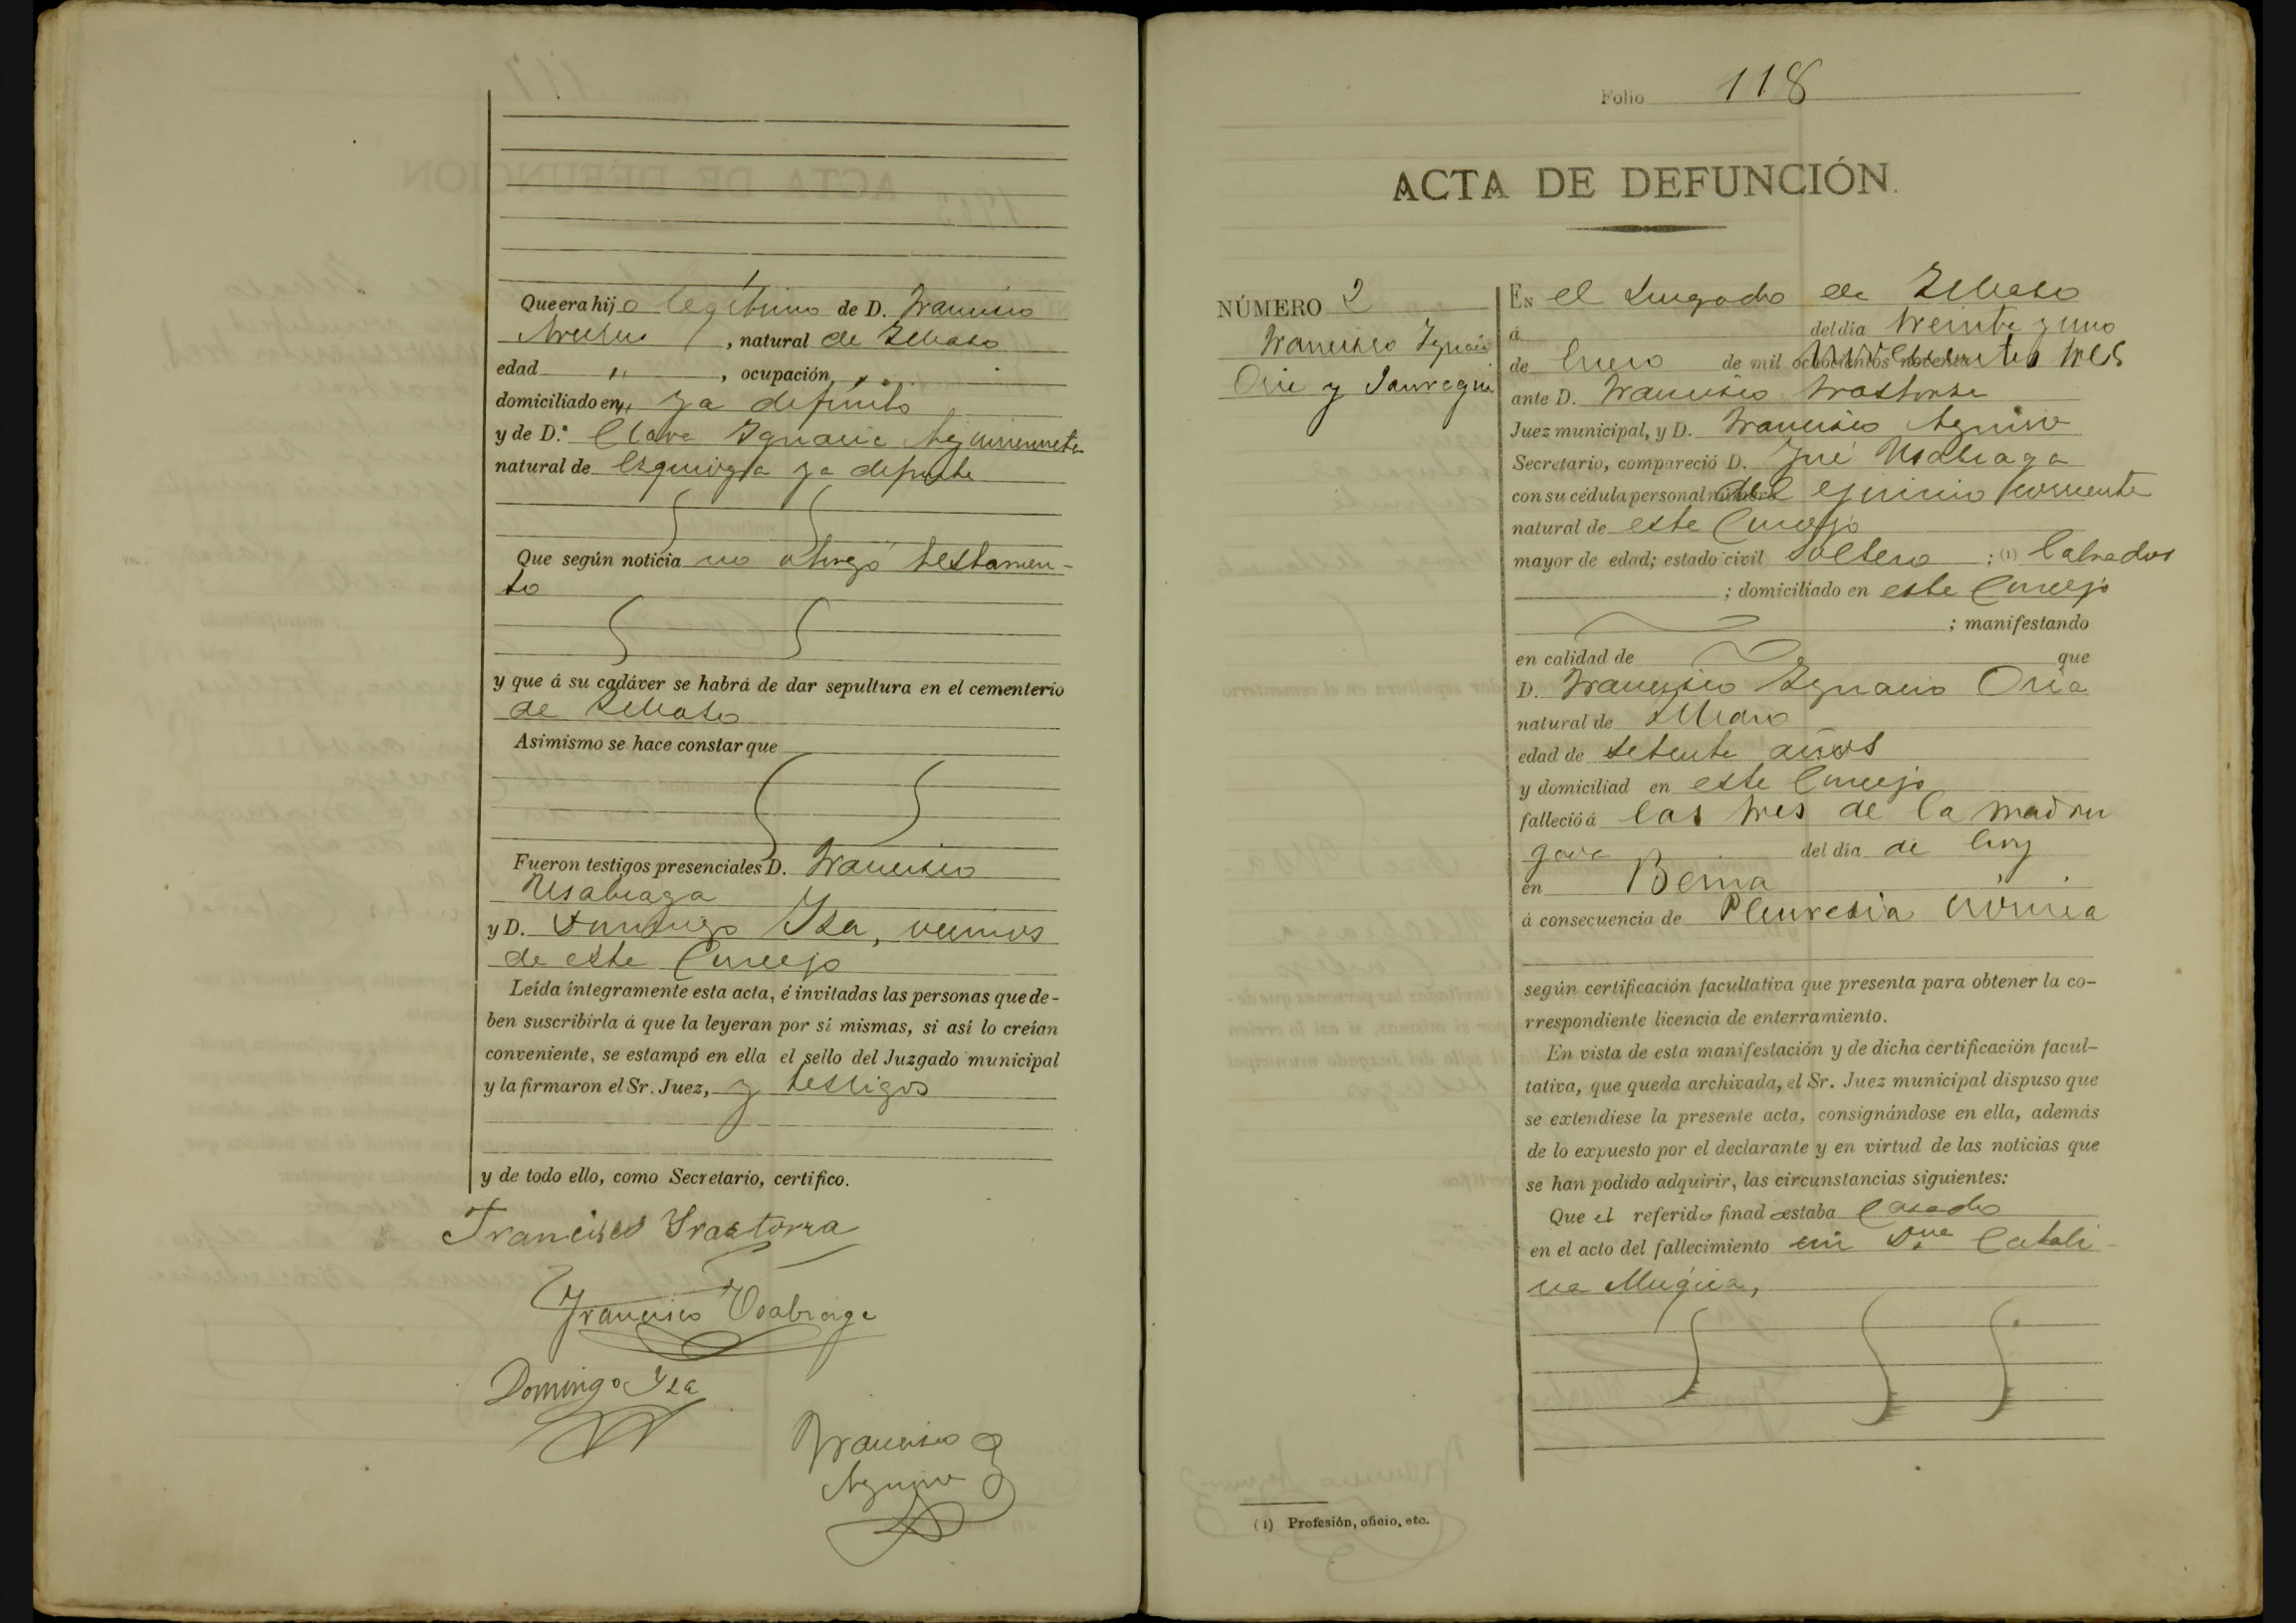 Que era hijo legítimo de D. Francisco
, natural de Zelhaso
edad " , ocupación "
domiciliado en " ya difunto
y de D.ª Clara Ignacia
natural de Ezquioga ya difunta
Que según noticia no otorgó testamen-
to
y que á su cadáver se habrá de dar sepultura en el cementerio
de
Asimismo se hace constar que
Fueron testigos presenciales D. Francisco
Usabiaga
y D. Domingo Yza, vecinos
de este Concejo
Leída íntegramente esta acta, é invitadas las personas que de-
ben suscribirla á que la leyeran por sí mismas, si así lo creían
conveniente, se estampó en ella el sello del Juzgado municipal
y la firmaron el Sr. Juez, y testigos
y de todo ello, como Secretario, certifico.
Francisco Yrastorza
Francisco Usabiaga
Domingo Yza
Francisco
Folio 118
ACTA DE DEFUNCIÓN.
NÚMERO 2
Francisco Ignacio
Oria y Jauregui
En el Juzgado de
á del día treinta y uno
de Enero de mil novecientos tres
ante D. Francisco Yrastorza
Juez municipal, y D. Francisco
Secretario, compareció D. José Usabiaga
con su cédula personal del ejercicio corriente
natural de este Concejo
mayor de edad; estado civil soltero ; (1) labrador
; domiciliado en este Concejo
; manifestando
en calidad de que
D. Francisco Ignacio Oria
natural de
edad de setenta años
y domiciliad en este Concejo
falleció á las tres de la madru
gada del día de hoy
en
á consecuencia de Pleuresia crónica
según certificación facultativa que presenta para obtener la co-
rrespondiente licencia de enterramiento.
En vista de esta manifestación y de dicha certificación facul-
tativa, que queda archivada, el Sr. Juez municipal dispuso que
se extendiese la presente acta, consignándose en ella, además
de lo expuesto por el declarante y en virtud de las noticias que
se han podido adquirir, las circunstancias siguientes:
Que el referido finado estaba Casado
en el acto del fallecimiento con Dna Catali-
na Mugica,
(1) Profesión, oficio, etc.